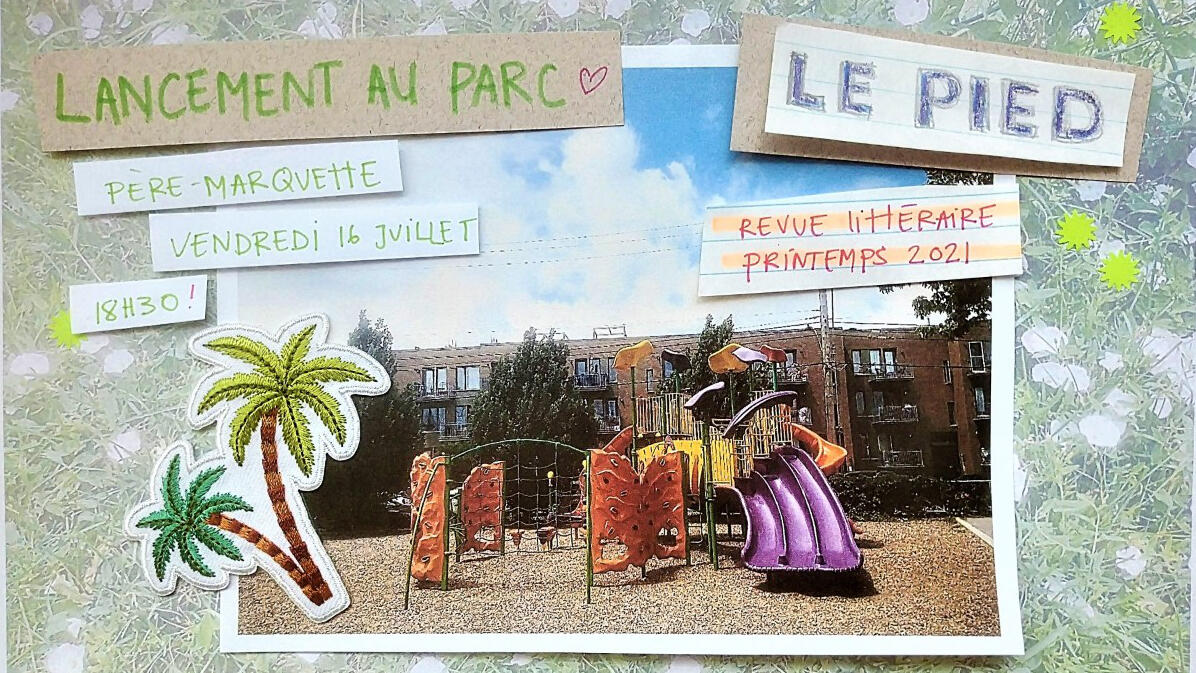 LANCEMENT AU PARC ♡
PÈRE-MARQUETTE
VENDREDI 16 JUILLET
18H30!
LE PIED
REVUE LITTÉRAIRE
PRINTEMPS 2021